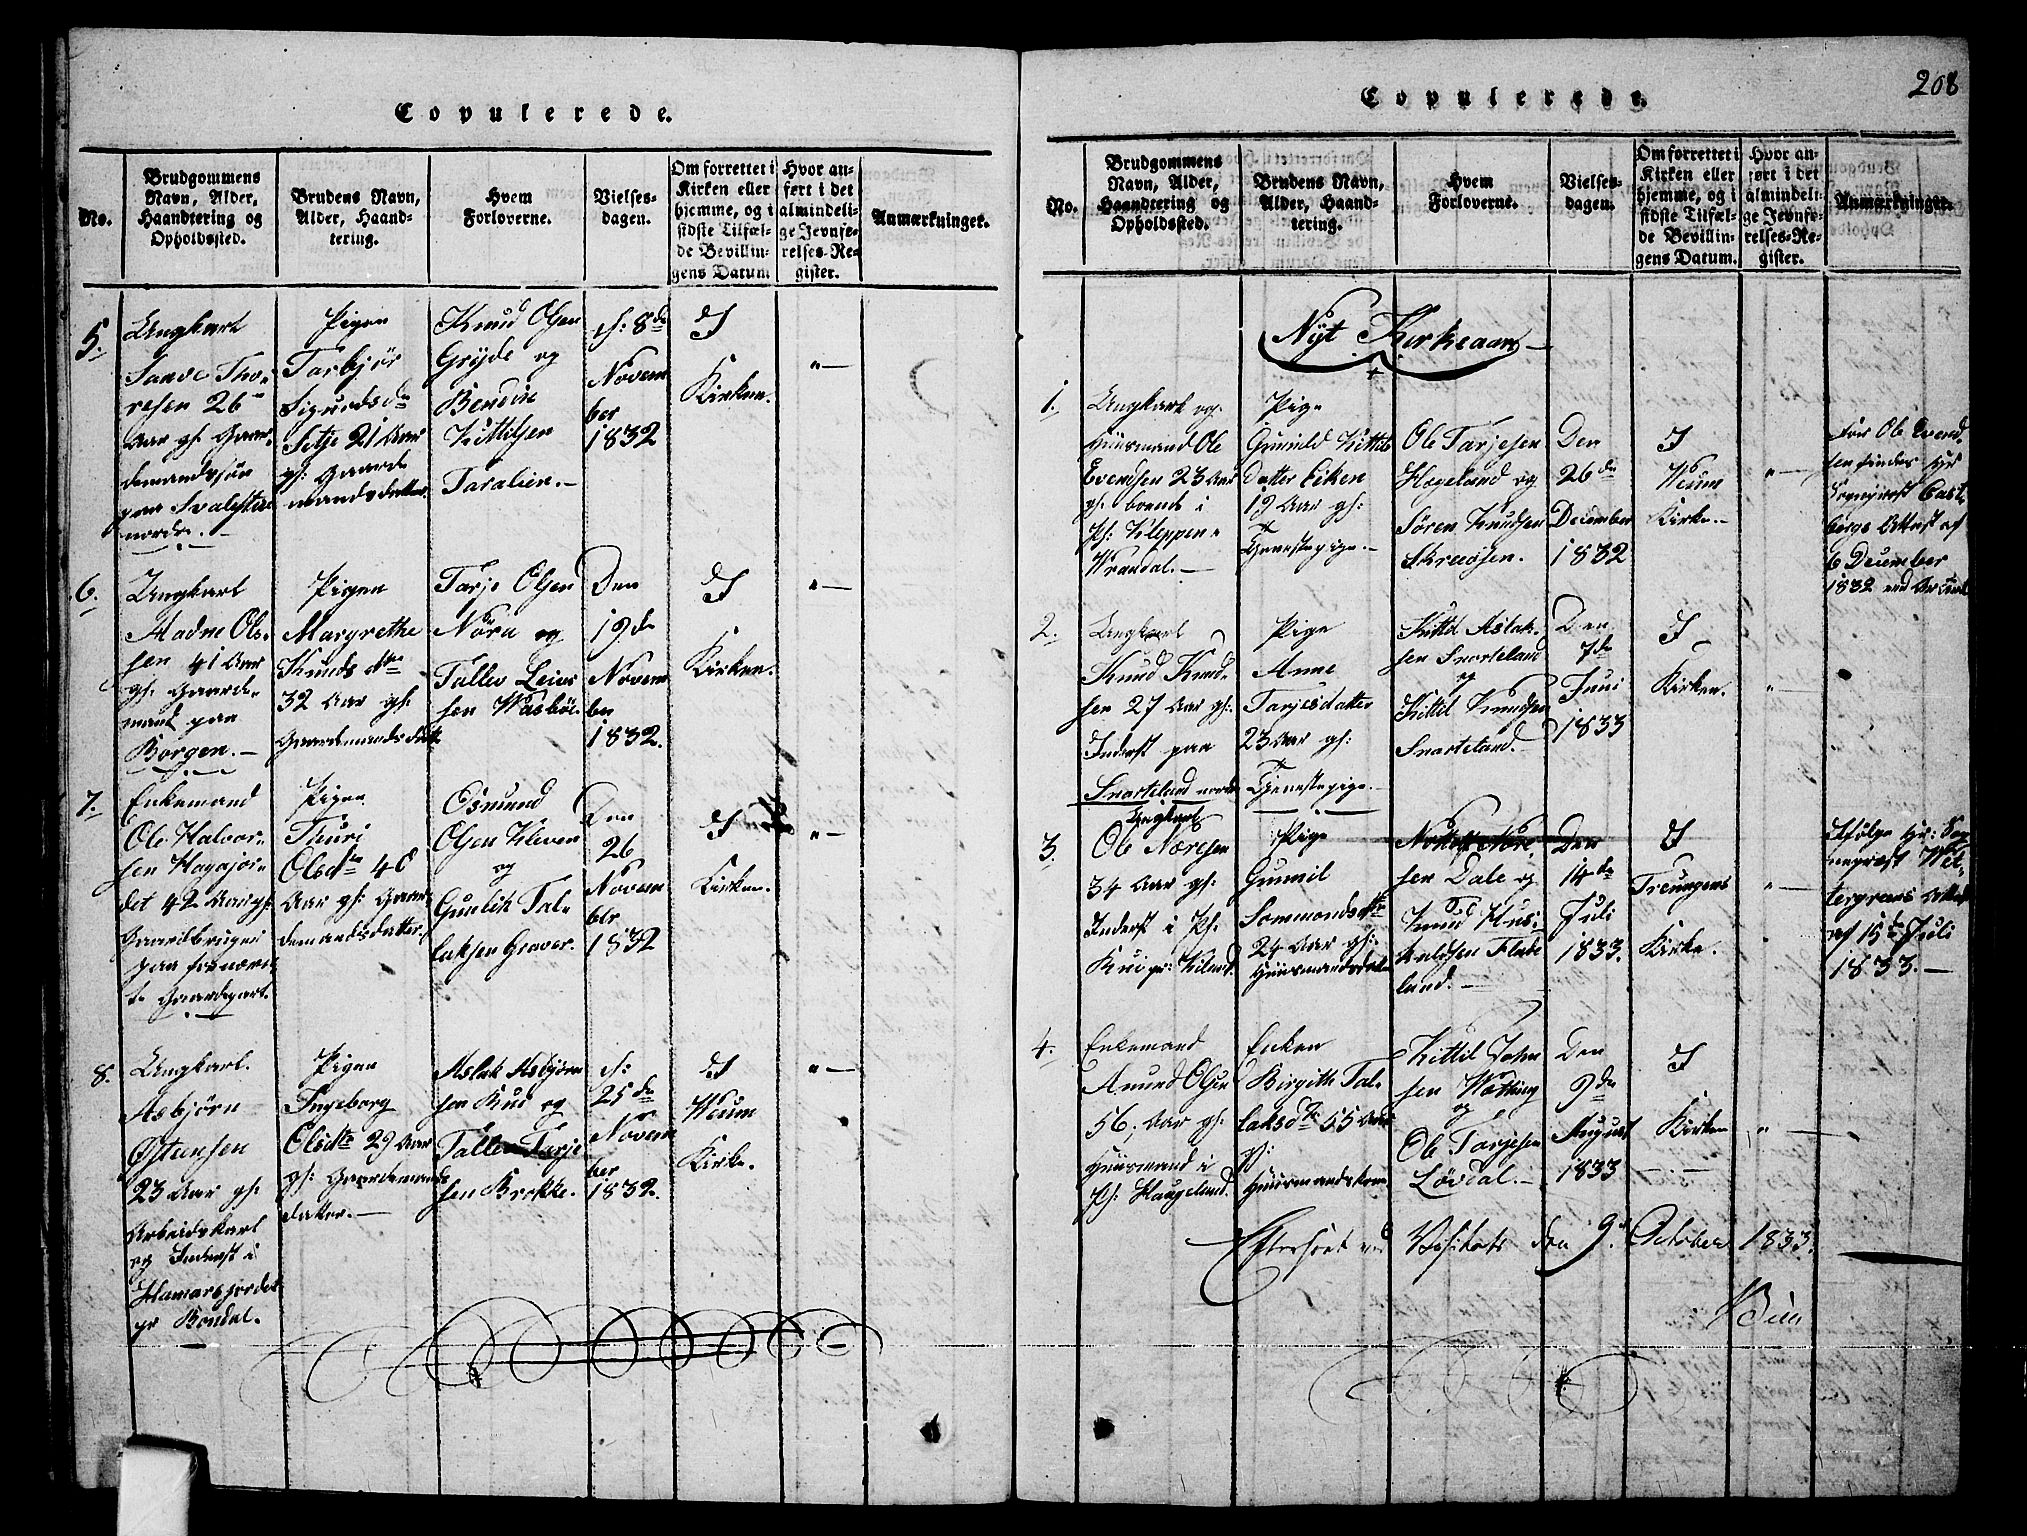 Copulerede.
No.
Brudgommens
Navn, Alder,
Haandtering og
Opholdssted.
Brudens Navn,
Alder, Haand-
tering.
Hvem
Forloverne.
Vielses-
dagen.
Om forrettet i
Kirken eller
hjemme, og i
sidste Tilfæl-
de Bevillin-
gens Datum.
Hvor an-
ført i det
almindeli-
ge Jevnfø-
relses-Re-
gister.
Anmærkninger.
5.
Ungkarl
Tarve Tho-
resen 26
Aar gl. Gaar-
demandssøn
paa
nordre.
Pigen
Torbjør
Sigurdsd.
Setje 21 Aar
gl: Gaarde
mandsdatter
Knud Olsen
Gryde og
Bendix
Kittilsen
Taralien.
d: 8de
Novem
ber
1832
I
Kirken.
"—
6.
Ungkarl
Aadne Ols-
sen 41 Aar
gl. Gaarde-
mand paa
Borgen.
Pigen
Margrethe
Knudsdtr
32 Aar gl:
Gaardemandsdatt
Tarje Olsen
Nöra og
Tallev Leivs
sen Wasböe.
Den
19de
Novem
ber
1832.
I
Kirken.
"—
7.
Enkemand
Ole Halvor-
sen Hagajor-
det 42 Aar gl:
Gaardbruger
paa fornævn
te Gaardepart.
Pigen
Thuri
Olsdtr 40
Aar gl: Gaar
demandsdatter.
Osmund
Olsen Kleven
og
Gunlik Tal-
laksen Graver.
Den
26
Novem
ber
1832
I
Kirken.
"—
8.
Ungkarl.
Asbjörn
Østensen
23 Aar gl:
Arbeidskarl
og Inderst i
Hamarsjordet
pr Bondal.
Pigen
Ingeborg
Olsdtr 29 Aar
gl: Gaardemands
datter.
Aslak Asbjörn
sen Rui og
Tallev Tarje
sen Brokke.
d:
25de
Novem
ber
1832.
I
Weum
Kirke.
"—
208
Copulerede.
No.
Brudgommens
Navn, Alder,
Haandtering og
Opholdssted.
Brudens Navn,
Alder, Haand-
tering.
Hvem
Forloverne.
Vielses-
dagen.
Om forrettet i
Kirken eller
hjemme, og i
sidste Tilfæl-
de Bevillin-
gens Datum.
Hvor an-
ført i det
almindeli-
ge Jevnfø-
relses-Re-
gister.
Anmærkninger.
Nyt Kirkeaar
1.
Ungkarl og
Huusmand Ole
Evendsen 23 Aar
gl. boende i
Pl: Kleppen
Wraadal.
Pige
Gunild Kittils
datter Eiken
19 Aar gl:
Tjenestepige.
Ole Tarjesen
Hegeland og
Sören Knudsen
Skreosen.
Den
26de
December
1832
I
Weum
Kirke.
"—
For Ole Evend-
sen findes Hr
Sognepræst Cast-
bergs Attest af
6 December
1832
2.
Ungkarl
Knud Knud-
sen 27 Aar gl:
Inderst paa
Snarteland nordre
Pige
Anne
Tarjesdatter
23 Aar gl:
Tjenestepige.
Kittil Aslak-
sen Snarteland
og
Kittil Knudsen
Snarteland.
Den
7de
Juni
1833
I
Kirken.
"—
3.
Ungkarl
Ole Næresen
34 Aar gl:
Inderst i Pl:
Rui pr: Kiland.
Pige
Gunnil
Sommondsdtr
24 Aar gl:
Huusmandsdatter
sen Dale og
Knud
land.
Den
14de
Juli
1833.
I
Treungens
Kirke.
"—
Ifølge Hr: Sog
nepræst Wet-
tergreens Attest
af 15de Juli
1833.
4.
Enkemand
Amund Olsen
56, Aar gl:
Huusmand i
Pl: Haugeland.
Enken
Birgith Tal-
laksdtr 55 Aar
gl:
Huusmandskone
Kittil John
sen Wætting
og
Ole Tarjesen
Lövdal.
Den
9de
August
1833
I
Kirken
"—
Efterseet ved Visitats den 9de October 1833.